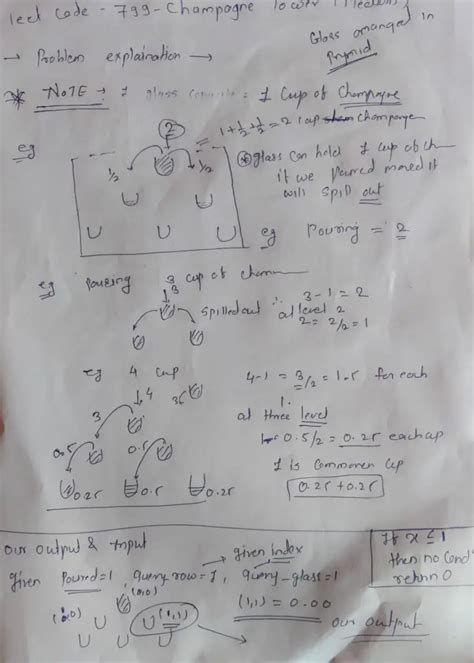 Leet Code - 799 - Champagne Tower
→ Problem explaination →
Glass arranged in
Prymid
* NOTE → 1 glass = 1 Cup of Champagne
2 = 1+1/2+1/2 = 2 cup champange
eg
1/2 1/2
* glass can hold 1 cup of ch
if we Poured mored it
will spill out
eg Pouring = 2
eg Pouring 3 cup of cham
3
spilledout ∴ 3-1 = 2
at level 2
2 = 2/2 = 1
eg 4 cup
4
3
4-1 = 3/2 = 1.5 for each
1.
at three level
0.5/2 = 0.25 each cup
1 is commonen cup
0.25 + 0.25
0.5 0.5
0.25 0.5 0.25
our output & Input
→ given Index
Given Poured=1, query row=1, query_glass=1
(0,0)
(1,0) (1,1)
(1,1) = 0.00
our output
If x ≤ 1
then no Cond
return 0